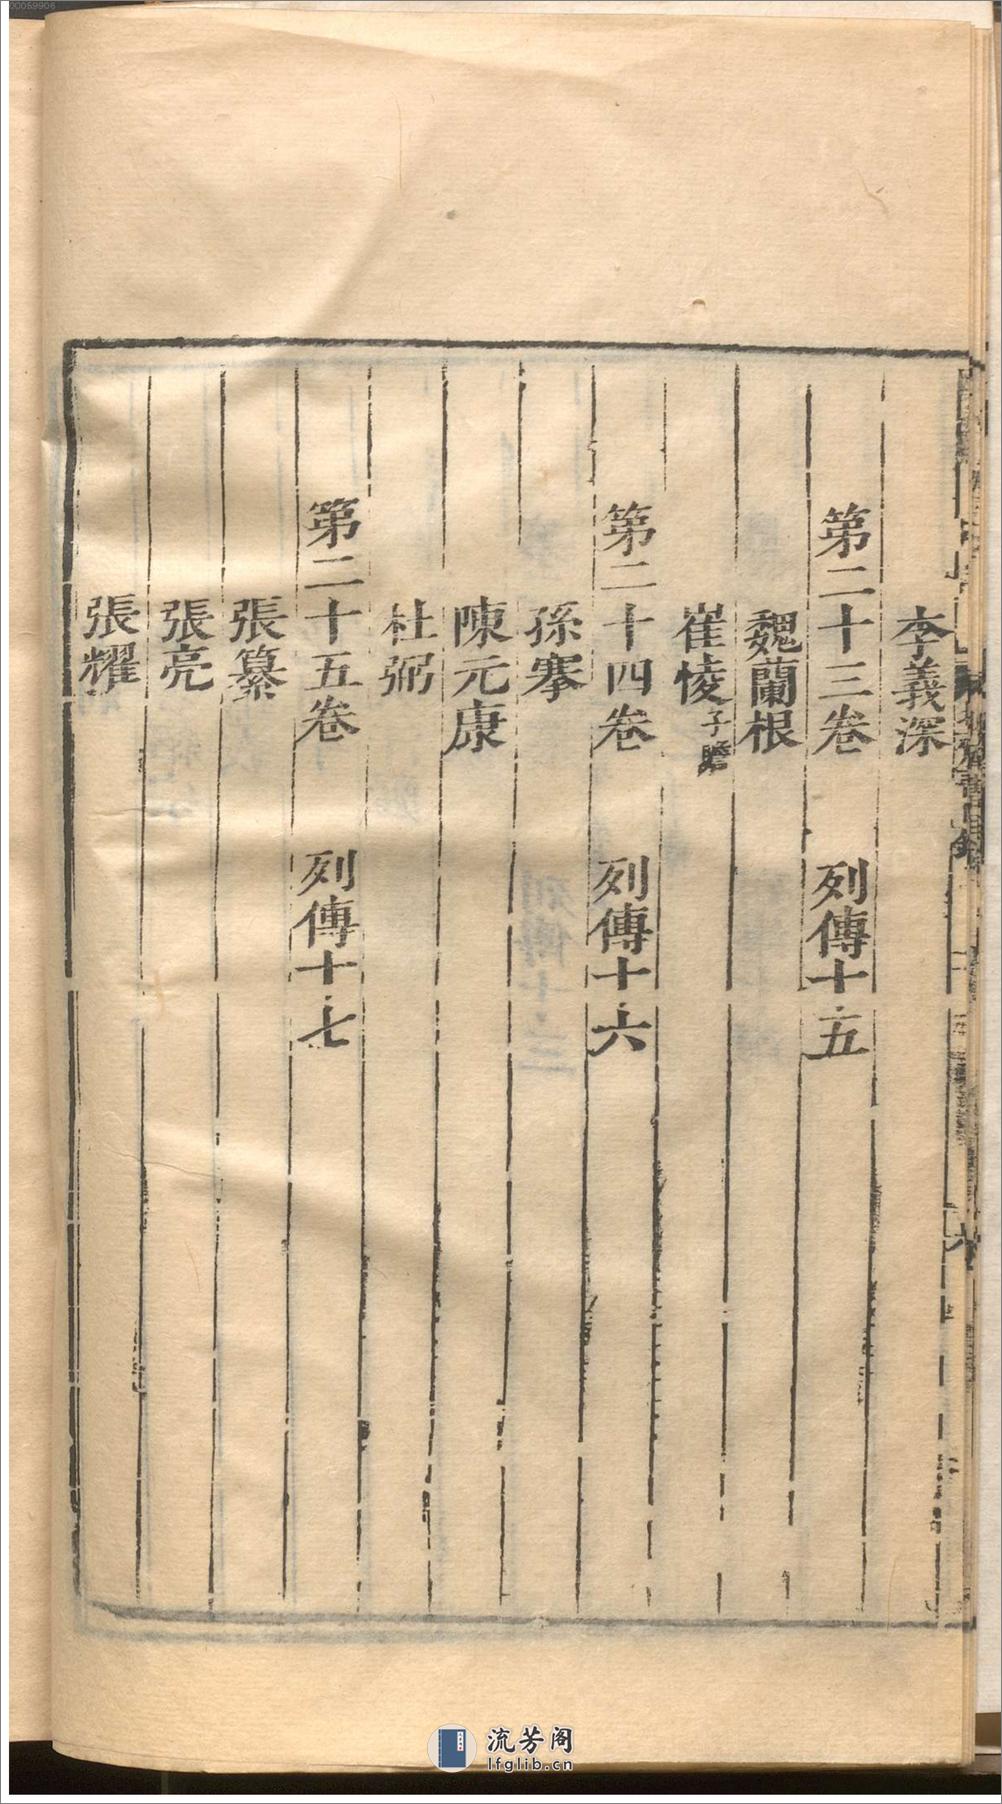 李義深
第二十三卷　列傳十五
魏蘭根
崔㥄子瞻
第二十四卷　列傳十六
孫搴
陳元康
杜弼
第二十五卷　列傳十七
張纂
張亮
張耀
流芳阁
lfglib.cn
00059906